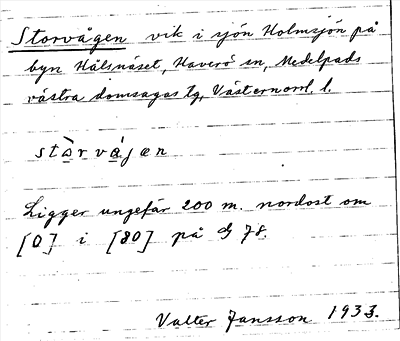 Storvågen vik i sjön Holmsjön på
byn Hålsnäset, Haverö sn, Medelpads
västra domsagas tg, Västernorrl. l.
Ligger ungefär 200 m. nordost om
[0] i [80] på 78.
Valter Jansson 1933.